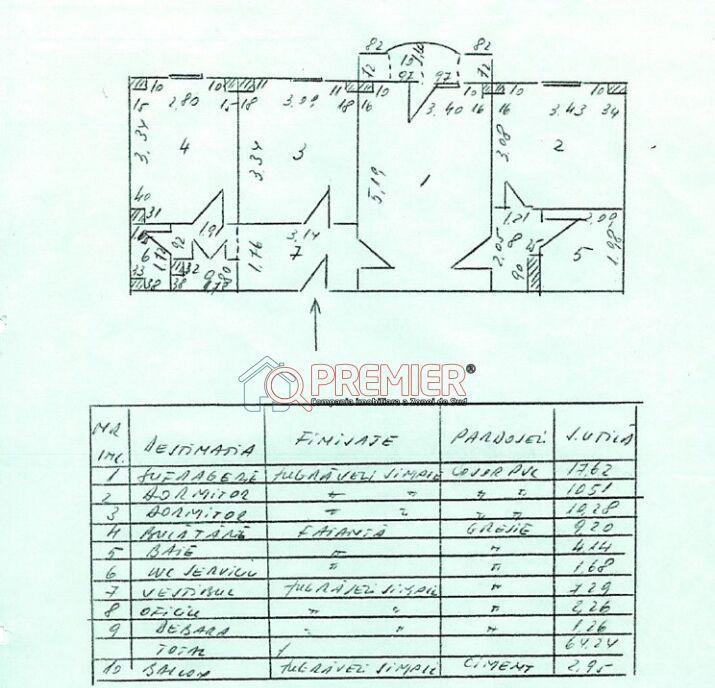 82 82
12 13 1,16 12
97 97
10 10 11 11 10 10 16 10
15 2,80 15 18 3,09 18 16 3,40 16 16 3,43 34
3,34 3,34 5,19 3,08
4 3 1 2
40
31 1,21 2,09
191 3,14 2,05 8 25 1,98
6 1,12 92 1,76 7 90 5
33 32 9 80
38 38
PREMIER®
Compania imobiliara a Zonei de Sud
NR INC. DESTINATIA FINISATE PARDOSELI S.UTILĂ
1 SUFRAGERIE ZUGRĂVELI SIMPLE COVOR PVC 17,62
2 DORMITOR " " " " 10,51
3 DORMITOR " " " " 10,28
4 BUCĂTĂRIE FAIANTĂ GRESIE 9,20
5 BAIE " " 4,14
6 WC SERVICIU " " 1,68
7 VESTIBUL ZUGRĂVELI SIMPLE " 7,29
8 OFICIU " " " 2,26
9 DEBARA " " " 1,26
TOTAL / 64,24
10 BALCON ZUGRĂVELI SIMPLE CIMENT 2,95